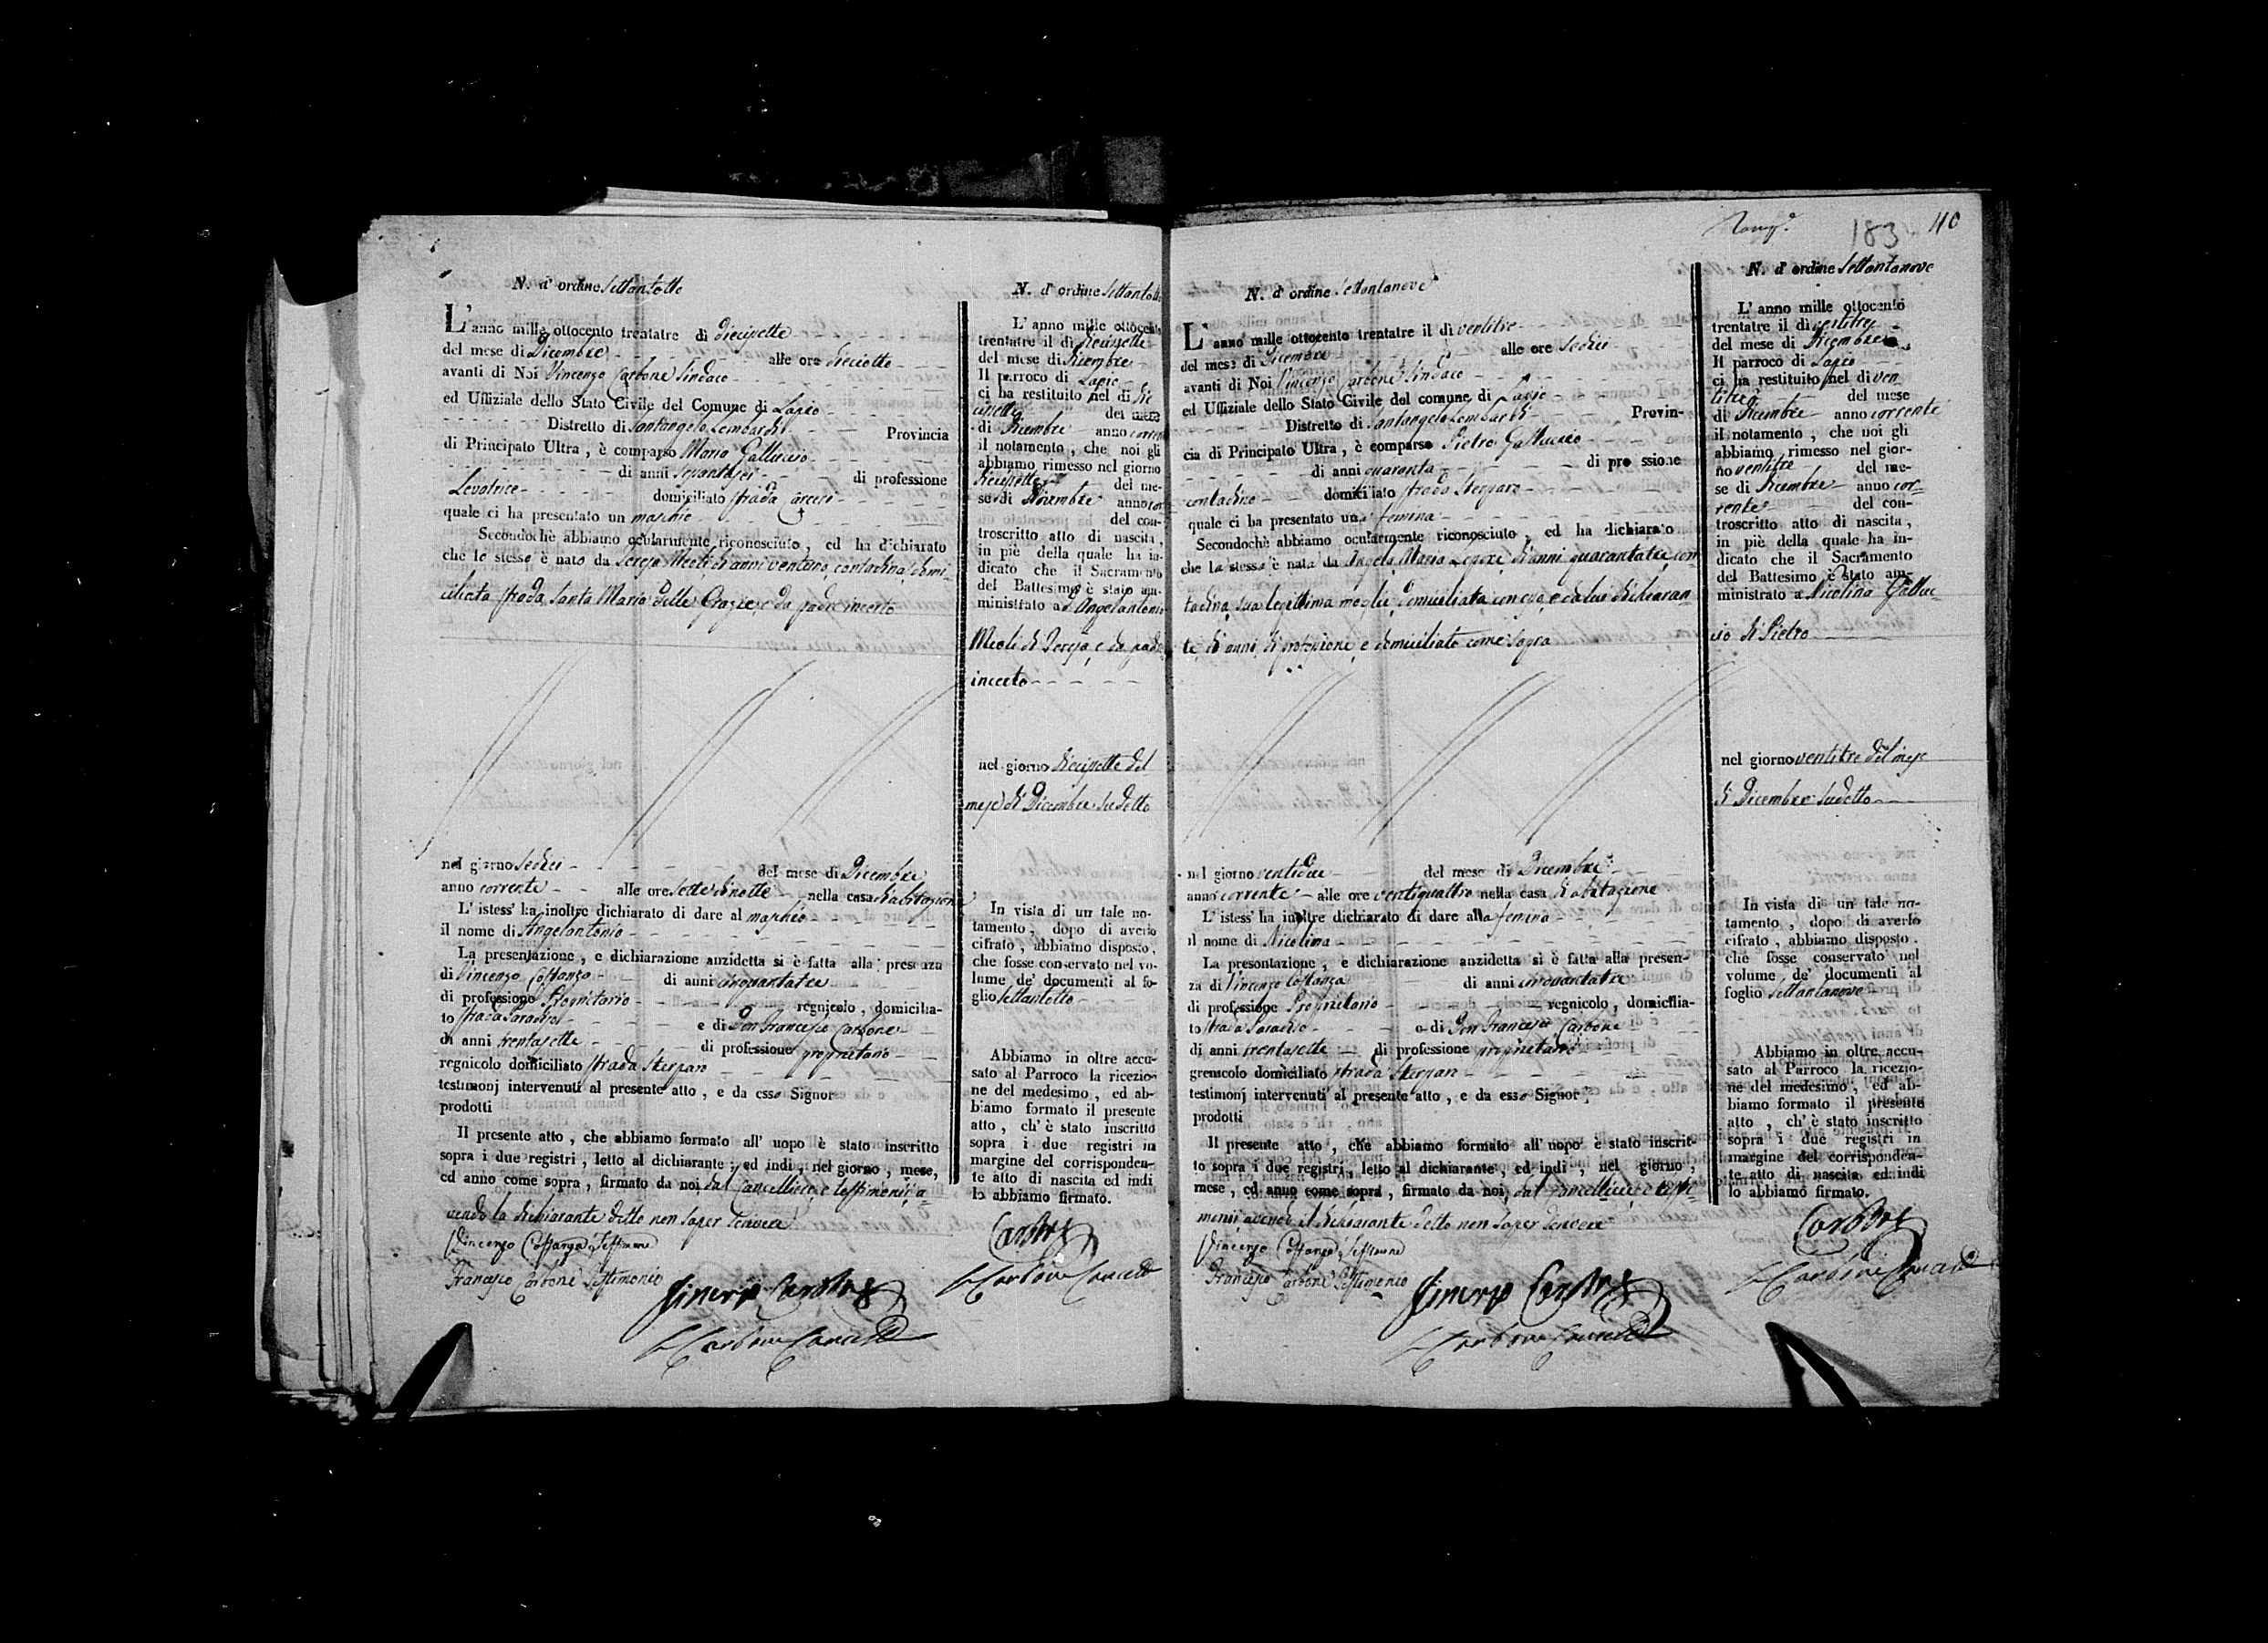 N. d' ordine Settantotto
L' anno mille ottocento trentatre di diecisette
del mese di Dicembre alle ore dieciotto
avanti di Noi Vincenzo Carbone Sindaco
ed Uffiziale dello Stato Civile del Comune di Lapio
Distretto di Santangelo Lombardi Provincia
di Principato Ultra, è comparso Maria Galluccio
di anni di professione
Levatrice domiciliato strada
quale ci ha presentato un maschio
Secondochè abbiamo ocularmente riconosciuto, ed ha dichiarato
che lo stesso è nato da Teresa Meoli di anni ventuno, contadina, domi-
ciliata strada Santa Maria delle Grazie, e da padre incerto
nel giorno sedici del mese di Dicembre
anno corrente alle ore sette di notte nella casa di abitazione
L' istess' ha inoltre dichiarato di dare al maschio
il nome di Angelantonio
La presentazione, e dichiarazione anzidetta si è fatta alla presenza
di Vincenzo Costanzo di anni cinquantatre
di professione Proprietario regnicolo, domicilia-
to strada Paradiso e di Don Francesco Carbone
di anni trentasette di professione proprietario
regnicolo domiciliato strada Sterparo
testimonj intervenuti al presente atto, e da esso Signor
prodotti
Il presente atto, che abbiamo formato all' uopo è stato inscritto
sopra i due registri, letto al dichiarante, ed indi, nel giorno, mese,
ed anno come sopra, firmato da noi, dal Cancelliere, e testimonj, a-
vendo la dichiarante detto non saper scrivere
Vincenzo Costanza Testimone
Francesco Carbone Testimonio
Vincenzo Carbone
Carbone Cancell
N. d' ordine Settantotto
L' anno mille ottocento
trentatre il dì diecisette
del mese di Dicembre
Il parroco di Lapio
ci ha restituito nel di die
cisette del mese
di Dicembre anno corrente
il notamento, che noi gli
abbiamo rimesso nel giorno
diecisette del me-
se di Dicembre anno cor
del con-
troscritto atto di nascita,
in piè della quale ha in-
dicato che il Sacramento
del Battesimo è stato am-
ministrato a Angelantonio
Meoli di Teresa, e da padre
incerto
nel giorno diecisette del
mese di Dicembre sudetto
In vista di un tale no-
tamento, dopo di averlo
cifrato, abbiamo disposto,
che fosse conservato nel vo-
lume de' documenti al fo-
glio settantotto
Abbiamo in oltre accu-
sato al Parroco la ricezio-
ne del medesimo, ed ab-
biamo formato il presente
atto, ch' è stato inscritto
sopra i due registri in
margine del corrisponden-
te atto di nascita ed indi
lo abbiamo firmato.
Carbone
Carbone Cancell
183 110
N. d' ordine Settantanove
L' anno mille ottocento trentatre il dì ventitre
del mese di Dicembre alle ore sedici
avanti di Noi Vincenzo Carbone Sindaco
ed Uffiziale dello Stato Civile del comune di Lapio
Distretto di Santangelo Lombardi Provin-
cia di Principato Ultra, è comparso Pietro Galluccio
di anni quaranta di professione
contadino domiciliato strada Sterparo
quale ci ha presentato una femina
Secondochè abbiamo ocularmente riconosciuto, ed ha dichiarato
che la stessa è nata da Angela Maria Lepore di anni quarantatre, con
tadina, sua legittima moglie, domiciliata con esso, e da lui dichiaran-
te, di anni, di professione, e domiciliato come sopra
nel giorno ventidue del mese di Dicembre
anno corrente alle ore ventiquattro nella casa di abitazione
L' istess' ha inoltre dichiarato di dare alla femina
il nome di Nicolina
La presentazione, e dichiarazione anzidetta si è fatta alla presen-
za di Vincenzo Costanza di anni cinquantatre
di professione Proprietario regnicolo, domicilia-
to strada Paradiso e di Don Francesco Carbone
di anni trentasette di professione proprietario
gremcolo domiciliato strada Sterparo
testimonj intervenuti al presente atto, e da esso Signor
prodotti
Il presente atto, che abbiamo formato all' uopo è stato inscrit-
to sopra i due registri, letto al dichiarante, ed indi, nel giorno,
mese, ed anno come sopra, firmato da noi, dal Cancelliere, e testi-
monj, avendo il dichiarante detto non saper scrivere
Vincenzo Costanza Testimone
Francesco Carbone Testimonio
Vincenzo Carbone
Carbone Cancell
N. d' ordine Settantanove
L' anno mille ottocento
trentatre il dì ventitre
del mese di Dicembre
Il parroco di Lapio
ci ha restituito nel di ven
titre del mese
di Dicembre anno corrente
il notamento, che noi gli
abbiamo rimesso nel gior-
no ventitre del me-
se di Dicembre anno cor-
rente del con-
troscritto atto di nascita,
in piè della quale ha in-
dicato che il Sacramento
del Battesimo è stato am-
ministrato a Nicolina Galluc-
cio di Pietro
nel giorno ventitre del mese
di Dicembre sudetto
In vista di un tale no-
tamento, dopo di averlo
cifrato, abbiamo disposto.
che fosse conservato nel
volume de' documenti al
foglio settantanove
Abbiamo in oltre accu-
sato al Parroco la ricezio-
ne del medesimo, ed ab-
biamo formato il presente
atto, ch' è stato inscritto
sopra i due registri in
margine del corrisponden-
te atto di nascita ed indi
lo abbiamo firmato.
Carbone
Carbone Cancell